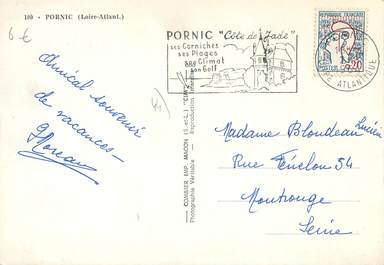 180 - PORNIC (Loire-Atlant.)
6 €
PORNIC "Côte de Jade"
ses Corniches
ses Plages
son Climat
son Golf
0.20
LOIRE ATLANTIQUE
Amical souvenir
de vacances -
Moreau
COMBIER IMP. MACON (S.-et-L.) "CIM"
Photographie Véritable - Reproduction interdite
Madame Blondeau Lucien
Rue Fénelon 54
Montrouge
Seine